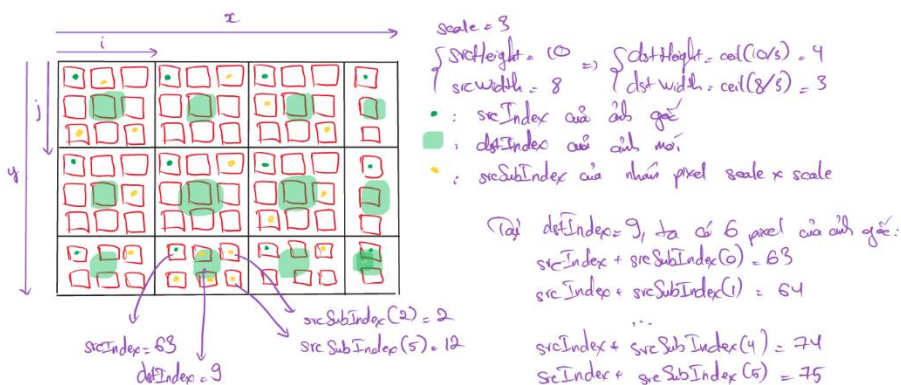 x
i
j
y
scale = 3
srcHeight = 10 => dstHeight = ceil(10/3) = 4
srcWidth = 8 dstWidth = ceil(8/3) = 3
: srcIndex của ảnh gốc
: dstIndex của ảnh mới
: srcSubIndex của nhóm pixel scale x scale
Tại dstIndex = 9, ta có 6 pixel của ảnh gốc:
srcIndex + srcSubIndex(0) = 63
srcIndex + srcSubIndex(1) = 64
...
srcIndex + srcSubIndex(4) = 74
srcIndex + srcSubIndex(5) = 75
srcSubIndex(2) = 2
srcSubIndex(5) = 12
srcIndex = 63
dstIndex = 9